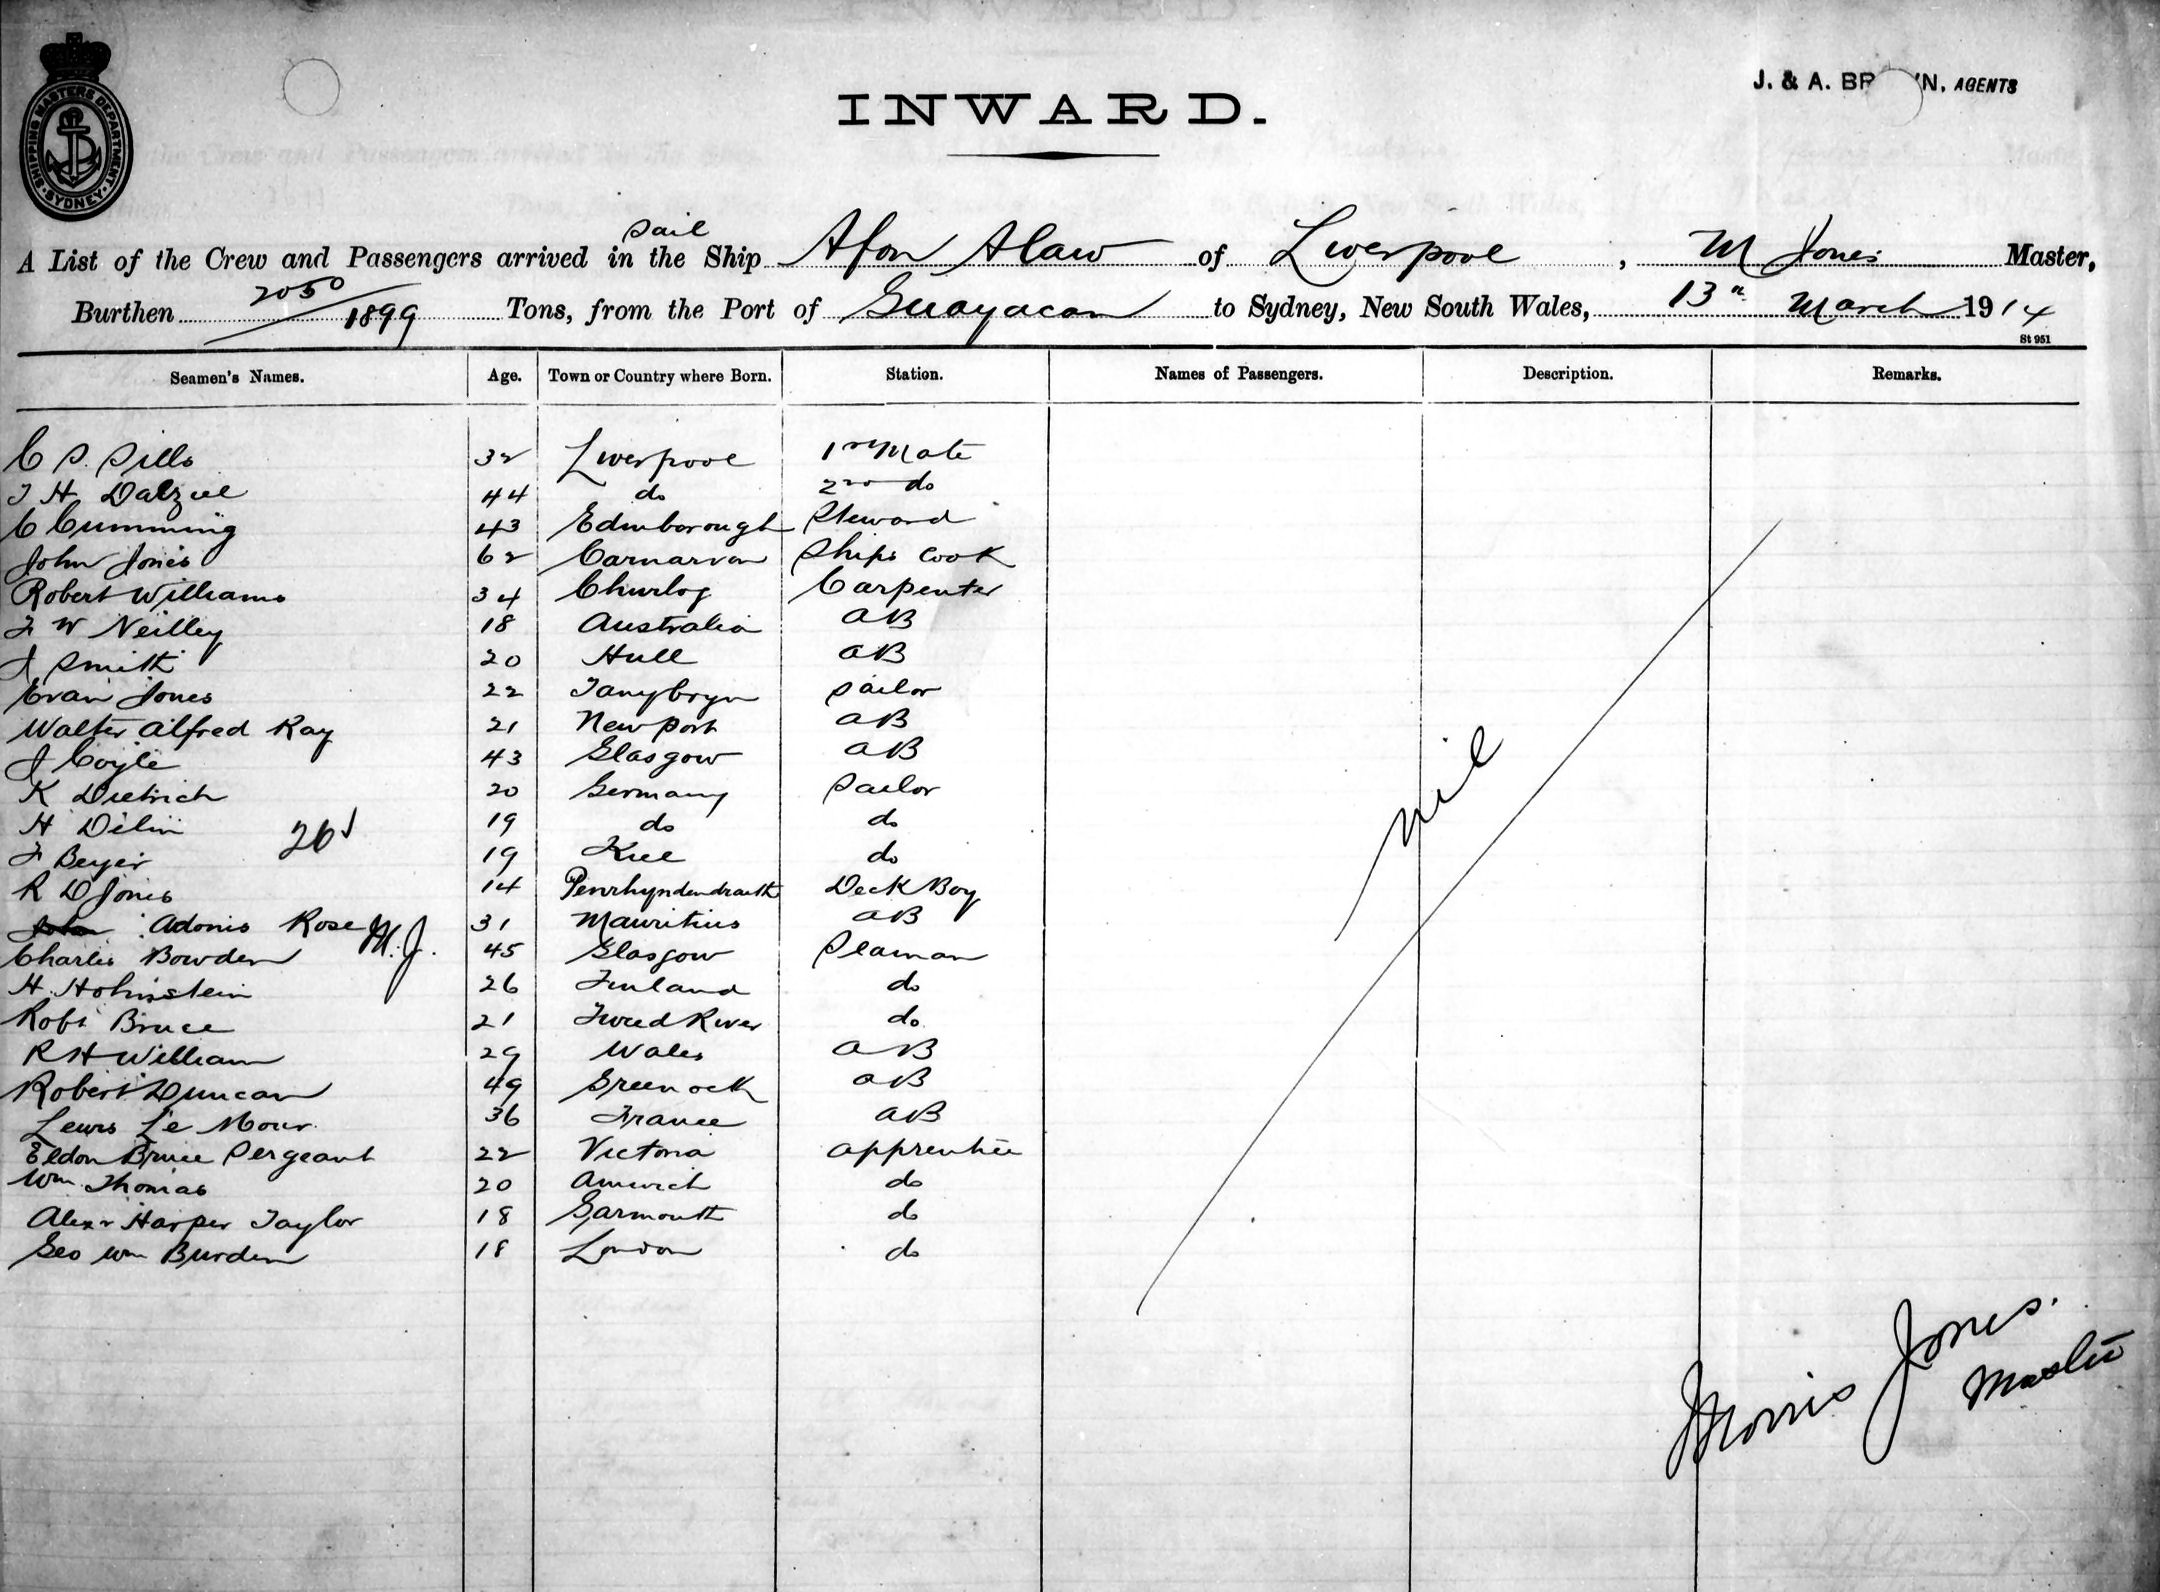 SHIPPING MASTERS DEPARTMENT SYDNEY
J. & A. BR N, AGENTS
INWARD.
sail
A List of the Crew and Passengers arrived in the Ship Afon Alaw of Liverpool, M Jones Master,
Burthen 2050/1899 Tons, from the Port of Guayacan to Sydney, New South Wales, 13th March 1914
St 951
Seamen's Names. Age. Town or Country where Born. Station. Names of Passengers. Description. Remarks.
C S. Sills 32 Liverpool 1st Mate
J H Dalziel 44 do 2nd do
C Cumming 43 Edinborough Steward
John Jones 62 Carnarvon Ships Cook
Robert Williams 34 Carpenter
J W Neilley 18 Australia AB
J Smith 20 Hull AB
Evan Jones 22 Tanybryn Sailor
Walter Alfred Ray 21 Newport AB
J Coyle 43 Glasgow AB
K Dietrich 20 Germany Sailor
H 19 do do
26
F Beyer 19 Kiel do
R D Jones 14 Penrhyndendraeth Deck Boy
Adonis Rose M.J. 31 Mauritius AB
Charles Bowden 45 Glasgow Seaman
H. Hohnstein 26 Finland do
Robt Bruce 21 Tweed River do
R H William 29 Wales AB
Robert Duncan 49 Greenock AB
Lewis Le Mour 36 France AB
Eldon Bruce Sergeant 22 Victoria apprentice
Wm Thomas 20 Amwich do
Alexr Harper Taylor 18 Garmouth do
Geo Wm Burden 18 London do
nil
Morris Jones.
Master